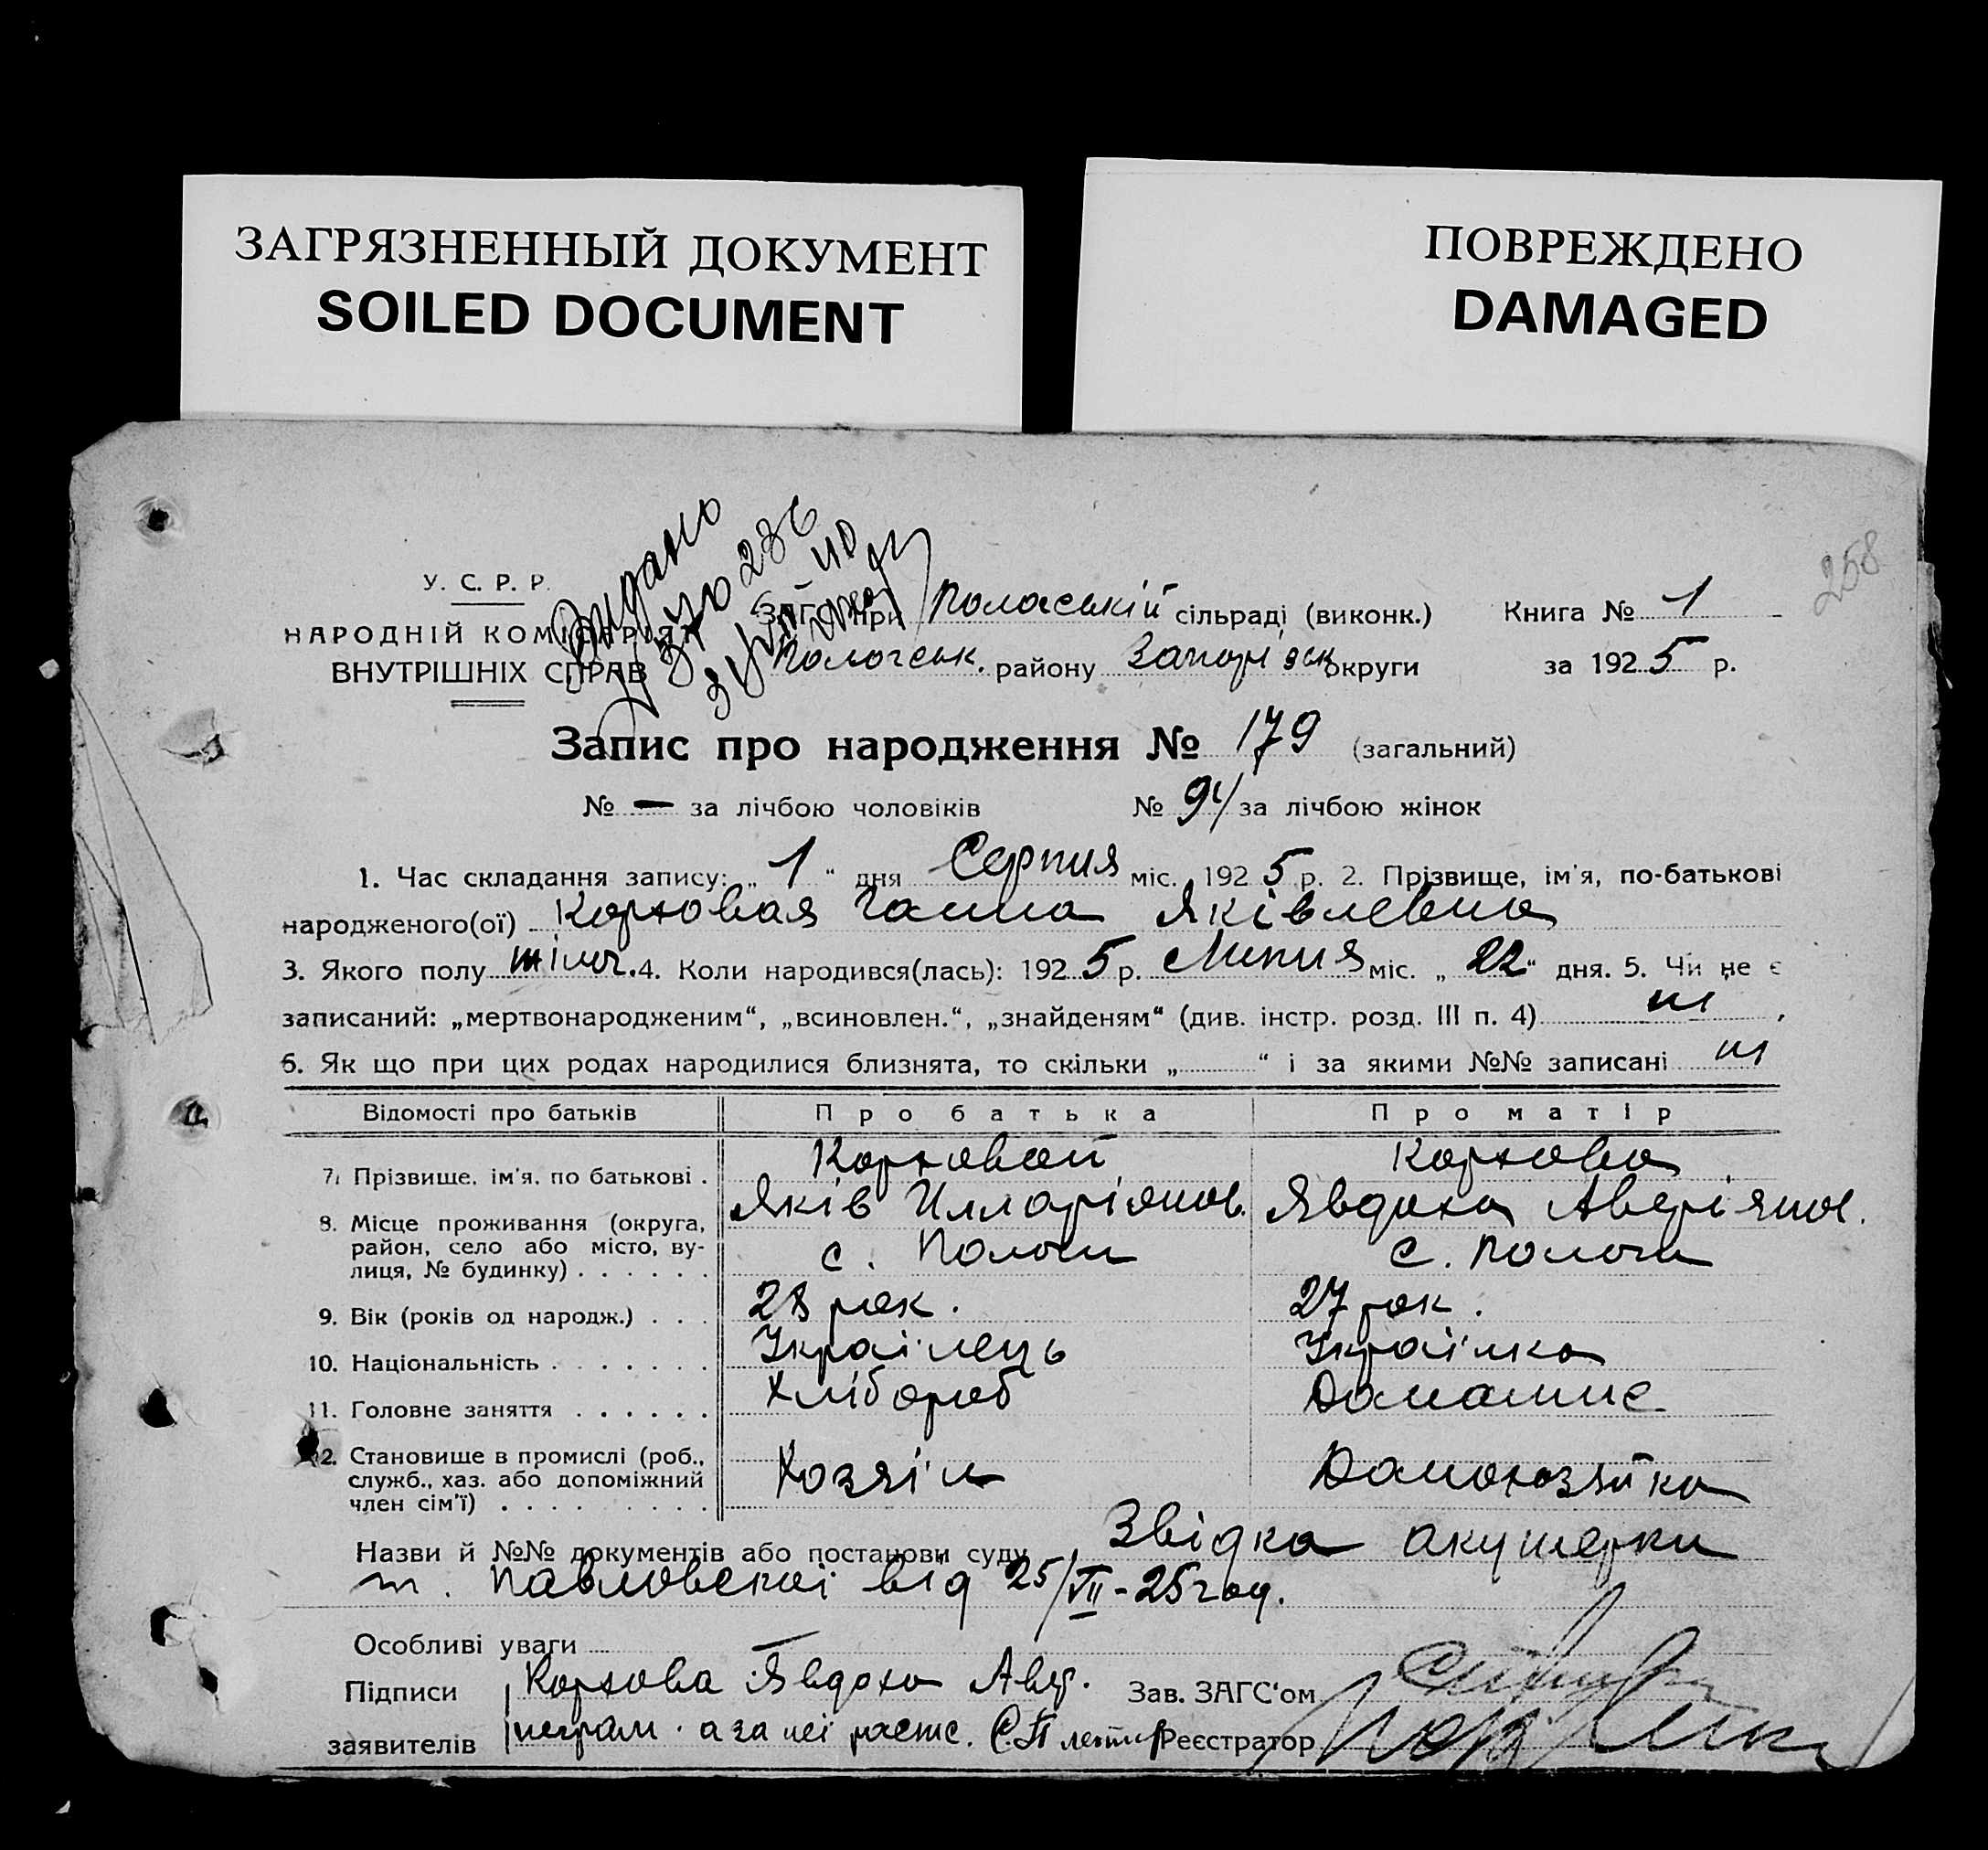 ЗАГРЯЗНЕННЫЙ ДОКУМЕНТ
SOILED DOCUMENT
ПОВРЕЖДЕНО
DAMAGED
258
Видано
У. С. Р. Р.
НАРОДНІЙ КОМІСАРІЯТ
ВНУТРІШНІХ СПРАВ
ЗАГС при Пологській сільраді (виконк.) Книга № 1
Пологськ. району Запорізськ округи за 1925 р.
Запис про народження № 179 (загальний)
№ — за лічбою чоловіків № 94 за лічбою жінок
1. Час складання запису: „ 1 “ дня Серпня міс. 1925 р. 2. Прізвище, ім'я, по-батькові
народженого(ої) Коржовая Ганна Яківлевна
3. Якого полу жіноч. 4. Коли народився(лась): 1925 р. Липня міс. „ 22 “ дня. 5. Чи не є
записаний: „мертвонародженим“, „всиновлен.“, „знайденям“ (див. інстр. розд. III п. 4) ні ,
6. Як що при цих родах народилися близнята, то скільки „ “ і за якими №№ записані ні
Відомості про батьків Про батька Про матір
7. Прізвище, ім'я, по батькові . Коржовой Коржова
Яків Илларіянов. Явдоха Аверіянов.
8. Місце проживання (округа, район, село або місто, вулиця, № будинку) . . . . . . с. Пологи с. Пологи
9. Вік (років од народж.) . . . 28 рок. 27 рок.
10. Національність . . . . . . . Українець Українка
11. Головне заняття . . . . . . Хлібороб Домашнє
12. Становище в промислі (роб., служб., хаз. або допоміжний член сім'ї) . . . . . . . . . Хозяїн Домохозяйка
Назви й №№ документів або постанови суду Звідка акушерки
т. Павловскої від 25/VII-25 год.
Особливі уваги
Підписи Коржова Явдоха Авер. Зав. ЗАГС'ом
заявителів неграм. а за неї розпис. Реєстратор